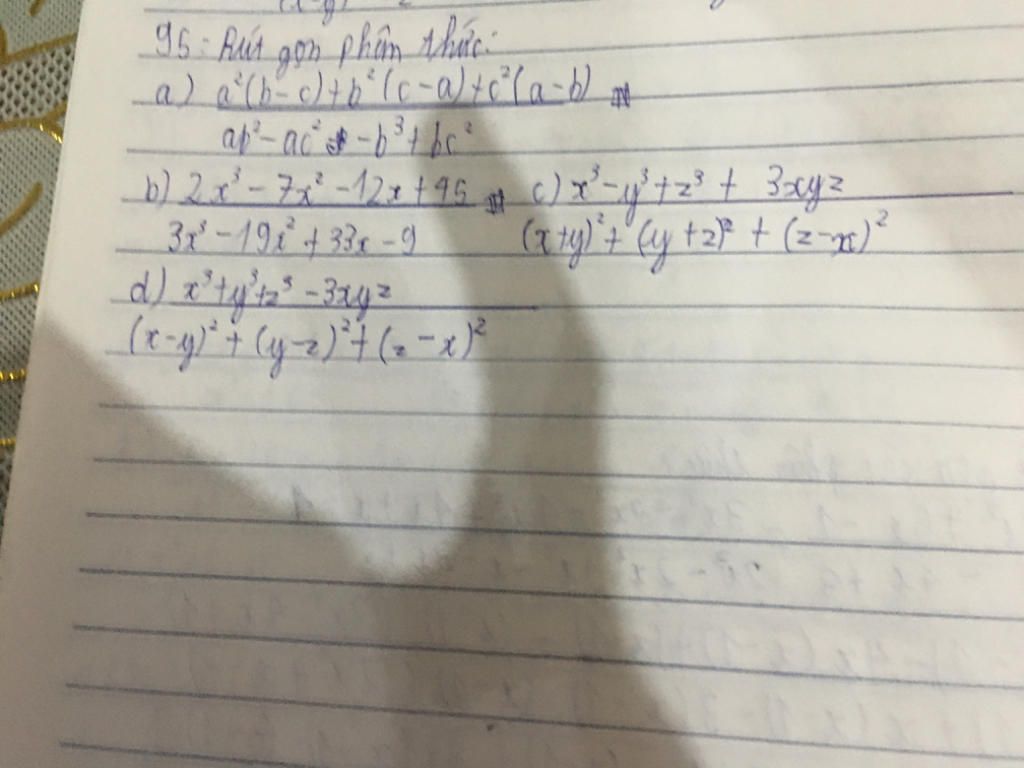 95: Rút gọn phân thức:
a) a²(b-c)+b²(c-a)+c²(a-b)
ab²-ac²-b³+bc²
b) 2x³-7x²-12x+45 c) x³-y³+z³+3xyz
3x³-19x²+33x-9 (x+y)²+(y+z)²+(z-x)²
d) x³+y³+z³-3xyz
(x-y)²+(y-z)²+(z-x)²